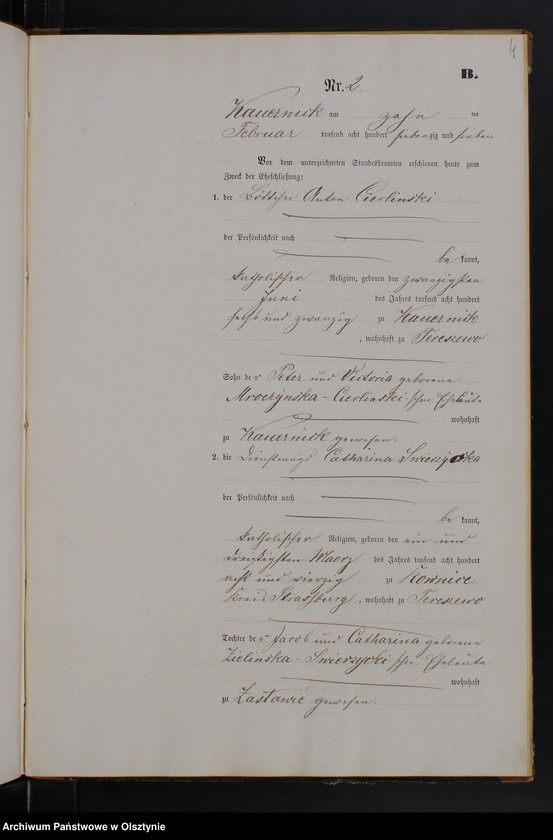 4
B.
Nr. 2.
Kauernick am zehn ten
Februar tausend acht hundert siebenzig und sieben
Vor dem unterzeichneten Standesbeamten erschienen heute zum
Zweck der Eheschließung:
1. der Böttcher Anton Cierlinski
der Persönlichkeit nach
be kannt,
katholischer Religion, geboren den zwanzigsten
Juni des Jahres tausend acht hundert
sechs und zwanzig zu Kauernick
, wohnhaft zu Tereszewo
Sohn der Peter und Victoria geborene
Mroczynska - Cierlinski schen Eheleute
wohnhaft
zu Kauernick gewesen.
2. die Dienstmagd Catharina
der Persönlichkeit nach
be kannt,
katholischer Religion, geboren den ein und
dreißigsten Maerz des Jahres tausend acht hundert
acht und vierzig zu
Kreis Strasburg, wohnhaft zu Tereszewo
Tochter der Jacob und Catharina geborene
Zielinska - Swierzycki schen Eheleute
wohnhaft
zu gewesen.
Archiwum Państwowe w Olsztynie